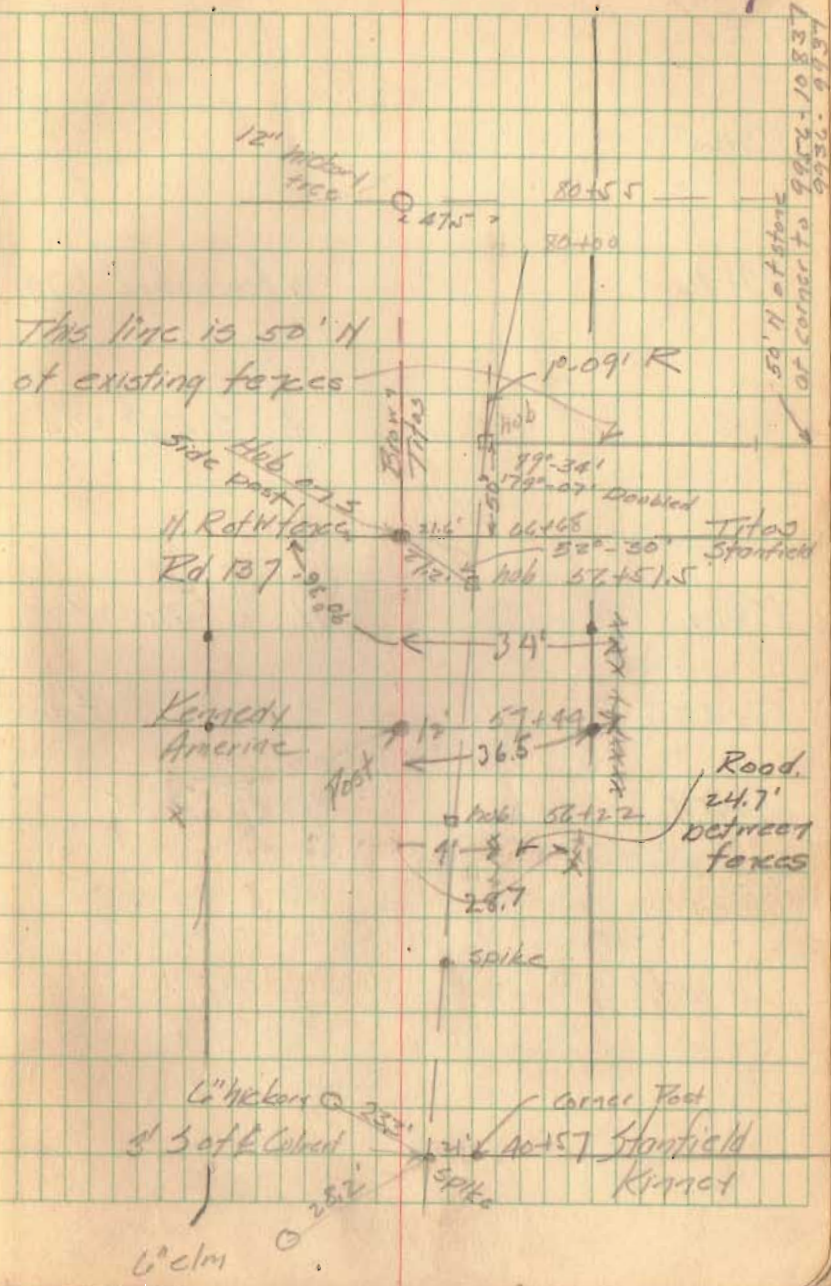 50' N of stone
at corner to 9956-10837
9936-9937
12" hickory
tree
47.5
80+55
80+00
This line is 50' N
of existing fences
1°-09' R
hub
Brown
Titus
Side post
79°-34'
50'
79°-07' Doubled
N. R of W fence
21.6'
66+68
Titus
Stanfield
52°-30'
Rd 137
21.2'
hub 57+51.5
34'
Kennedy
Amerine
Post
12'
57+44
36.5
Road.
24.7'
between
fences
hub 56+22
4'
28.7
spike
6" hickory
23.2'
Corner Post
3' S of ₵ Culvert
21'
40+57 Stanfield
Kinney
spike
25.2'
6" elm